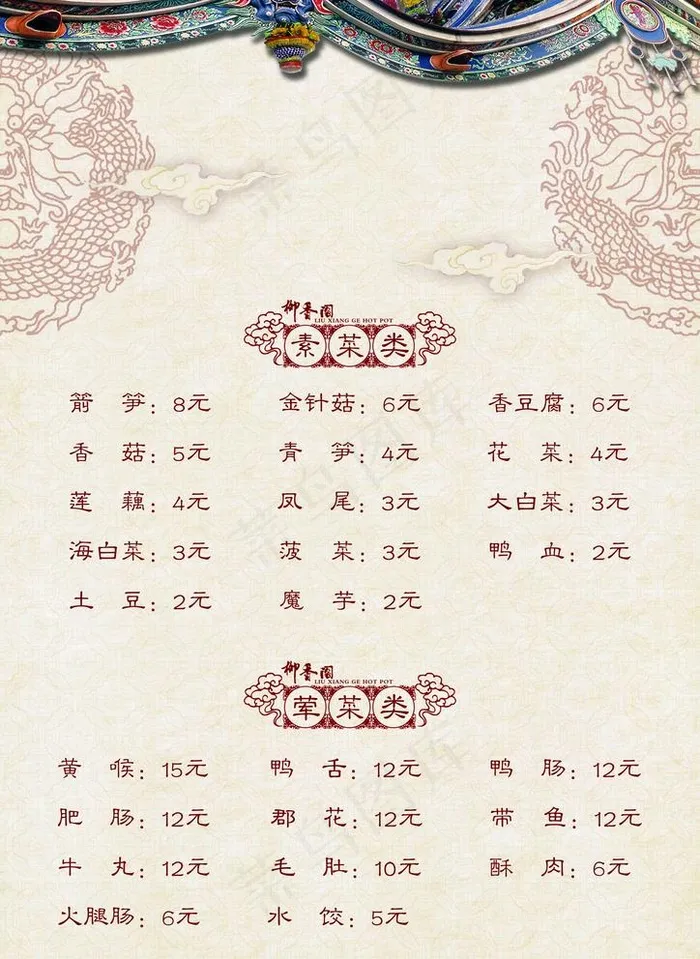 柳香阁
LIU XIANG GE HOT POT
素菜类
箭 笋：8元 金针菇：6元 香豆腐：6元
香 菇：5元 青 笋：4元 花 菜：4元
莲 藕：4元 凤 尾：3元 大白菜：3元
海白菜：3元 菠 菜：3元 鸭 血：2元
土 豆：2元 魔 芋：2元
柳香阁
LIU XIANG GE HOT POT
荤菜类
黄 喉：15元 鸭 舌：12元 鸭 肠：12元
肥 肠：12元 郡 花：12元 带 鱼：12元
牛 丸：12元 毛 肚：10元 酥 肉：6元
火腿肠：6元 水 饺：5元
菜鸟图库
菜鸟图库
菜鸟图库